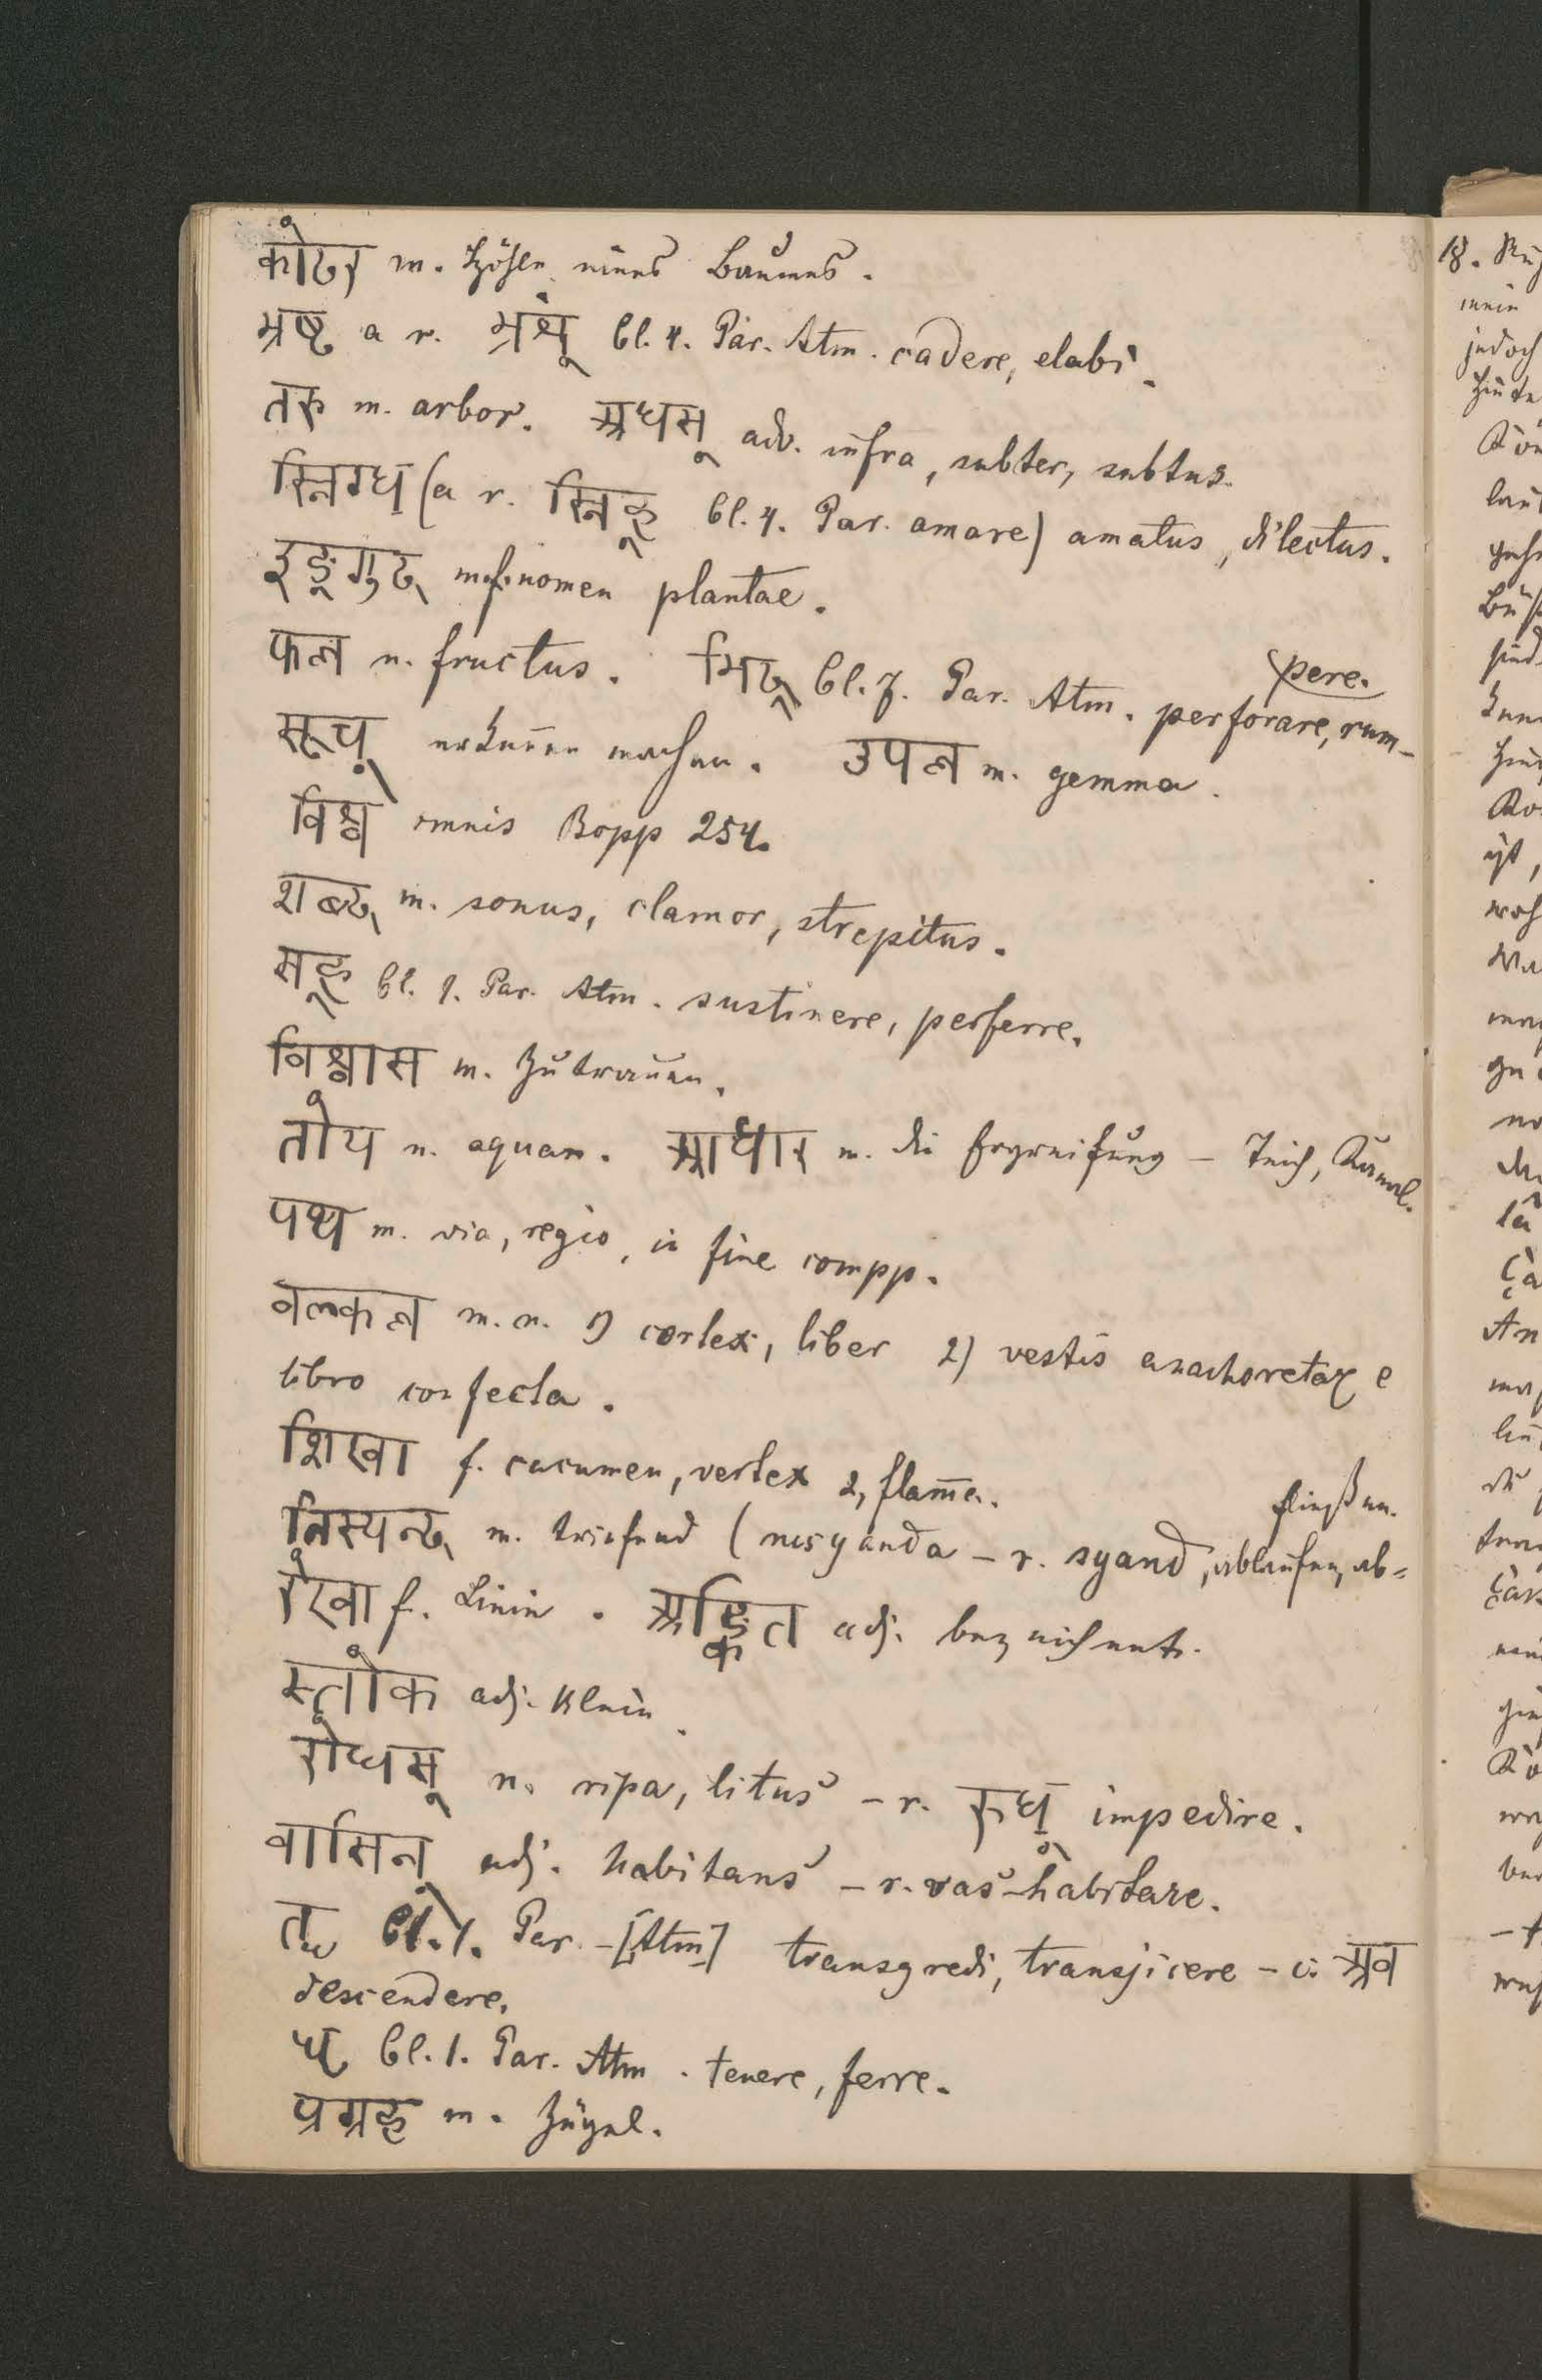 कोटर m. Höhle eines Baumes.
भ्रष्ट a r. भ्रंश् Cl. 4. Par. Atm. cadere, elabi.
तरु m. arbor. अधस् adv. infra, subter, subtus.
स्निग्ध (a r. स्निह् Cl. 4. Par. amare) amatus, dilectus.
इङ्गुद mf. nomen plantae.
फल n. fructus. भिद् Cl. 7. Par. Atm. perforare, rum-
pere.
सूच् erkennen machen. उपल m. gemma.
विश्व omnis Bopp 254.
शब्द m. sonus, clamor, strepitus.
सह् Cl. 1. Par. Atm. sustinere, perferre.
विश्वास m. Zutrauen.
तोय n. aquam. आधार m. die Ergreifung – Teich, Kanal.
पथ m. via, regio, in fine compp.
वल्कल m. n. 1) cortex, liber 2) vestis anachoretae e
libro confecta.
शिखा f. cacumen, vertex 2, flam̄a.
निस्यन्द m. triefend (nisyanda – r. syand, ablaufen, ab=
fließen.
रेखा f. Linie. अङ्कित adj. bezeichnet.
स्तोक adj. klein.
रोधस् n. ripa, litus – r. रुध् impedire.
वासिन् adj. habitans – r. vas habitare.
तॄ Cl. 1. Par. – [Atm] transgredi, transjicere – c. अव
descendere.
धृ Cl. 1. Par. Atm. tenere, ferre.
प्रग्रह m. Zügel.
18.
mein
jedoch